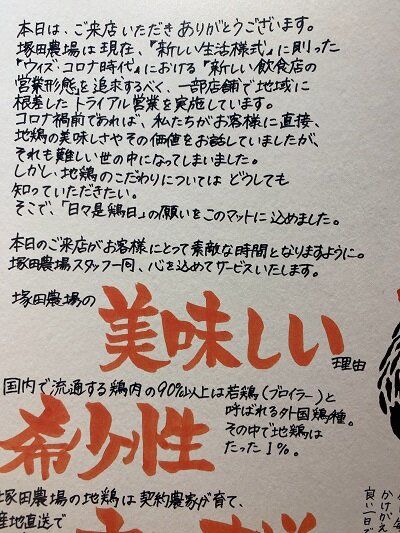 本日は、ご来店いただきありがとうございます。
塚田農場は現在、『新しい生活様式』に則った
『ウィズ・コロナ時代』における『新しい飲食店の
営業形態』を追求するべく、一部店舗で地域に
根差したトライアル営業を実施しています。
コロナ禍前であれば、私たちがお客様に直接、
地鶏の美味しさやその価値をお話していましたが、
それも難しい世の中になってしまいました。
しかし、地鶏のこだわりについてはどうしても
知っていただきたい。
そこで、「日々是鶏日」の願いをこのマットに込めました。
本日のご来店がお客様にとって素敵な時間となりますように。
塚田農場スタッフ一同、心を込めてサービスいたします。
塚田農場の
美味しい
理由
国内で流通する鶏肉の90%以上は若鶏(ブロイラー)と
呼ばれる外国鶏種。
その中で地鶏は
たった1%。
希少性
塚田農場の地鶏は契約農家が育て、
産地直送で
かけがえ
良い一日で